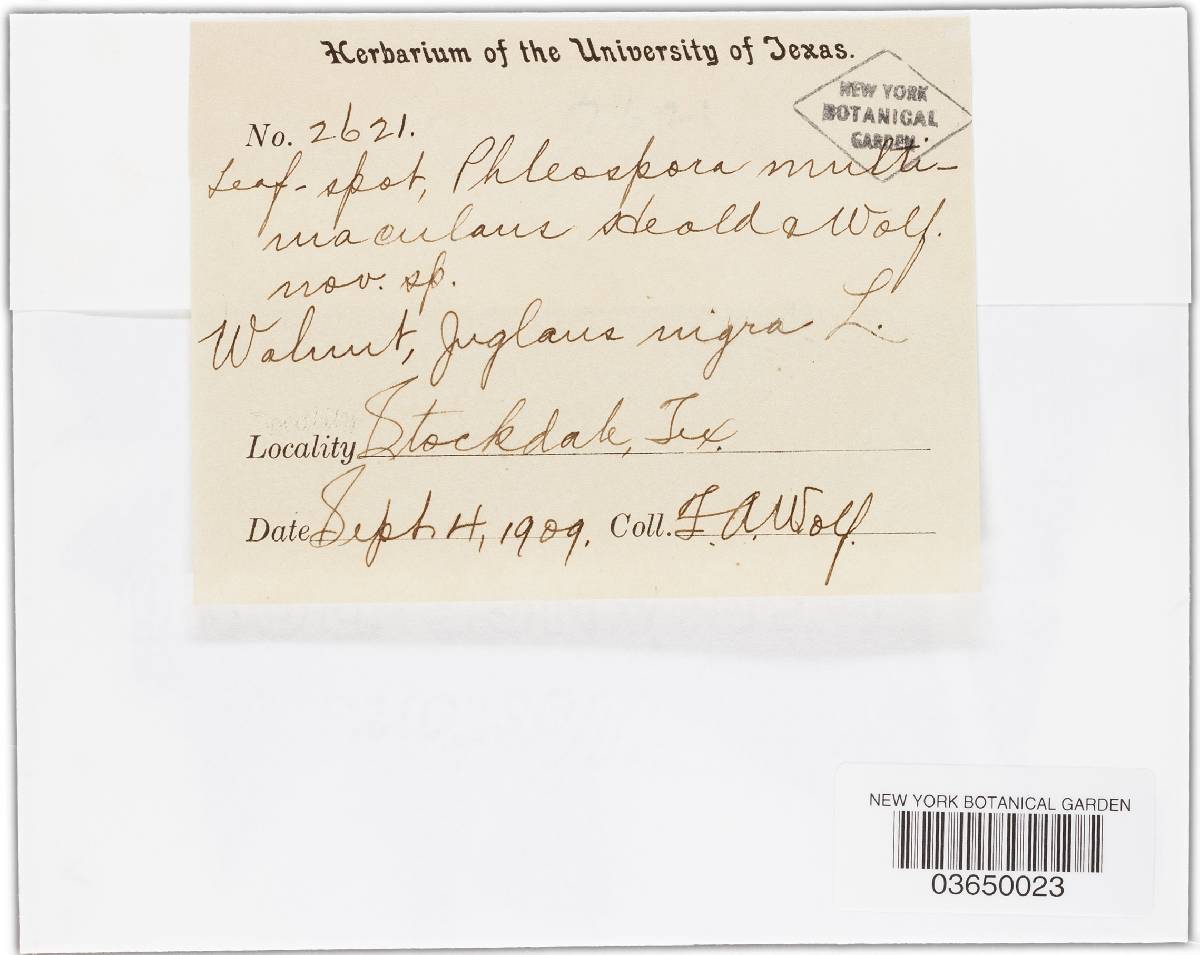 Herbarium of the University of Texas.
NEW YORK
BOTANICAL
GARDEN
No. 2621.
Leaf-spot, Phleospora multi-
maculans Heald & Wolf.
nov. sp.
Walnut, Juglans nigra L.
Locality Stockdale, Tex.
Date Sept. 4, 1909. Coll. F. A. Wolf.
NEW YORK BOTANICAL GARDEN
03650023